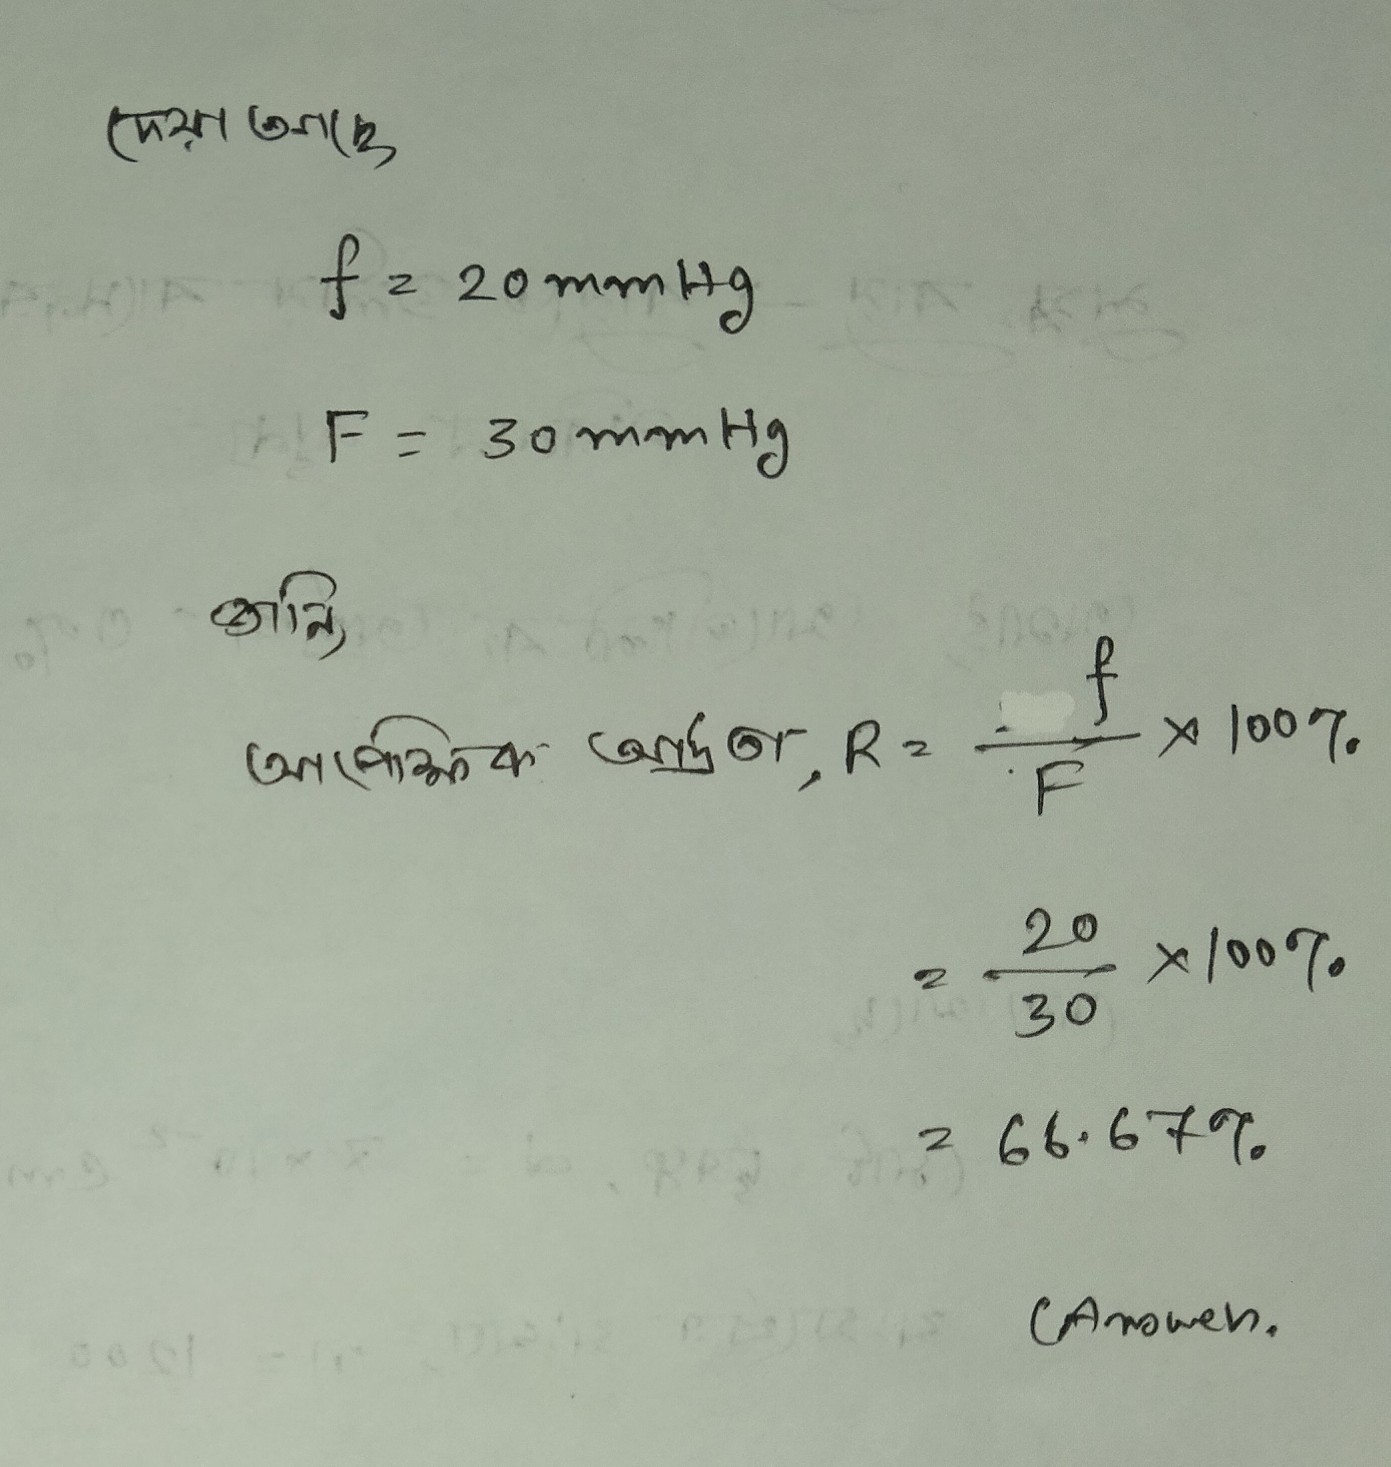 দেয়া আছে
f = 20 mmHg
F = 30 mmHg
জানি,
আপেক্ষিক আর্দ্রতা, R = f/F × 100%
= 20/30 × 100%
= 66.67%
(Answer.